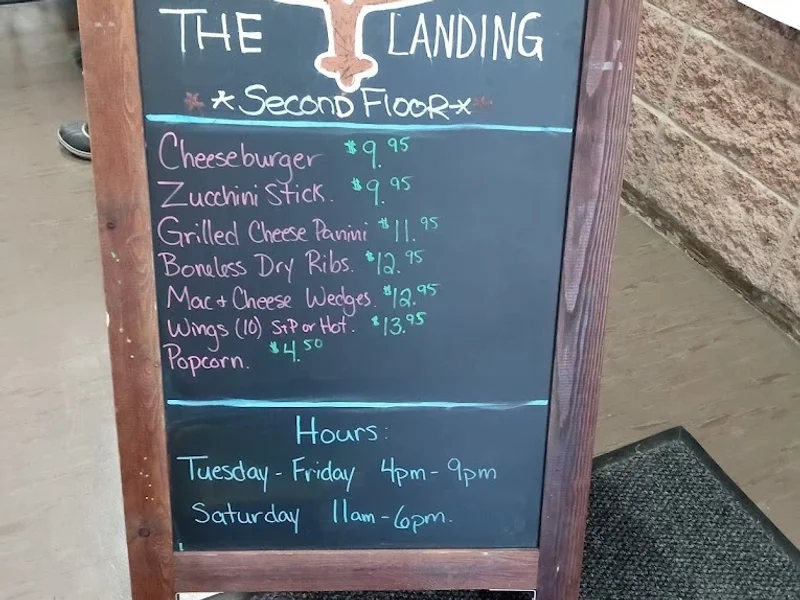 THE LANDING
*Second Floor*
Cheeseburger $9.95
Zucchini Stick. $9.95
Grilled Cheese Panini $11.95
Boneless Dry Ribs. $12.95
Mac + Cheese Wedges. $12.95
Wings (10) S+P or Hot. $13.95
Popcorn. $4.50
Hours:
Tuesday - Friday 4pm - 9pm
Saturday 11am - 6pm.